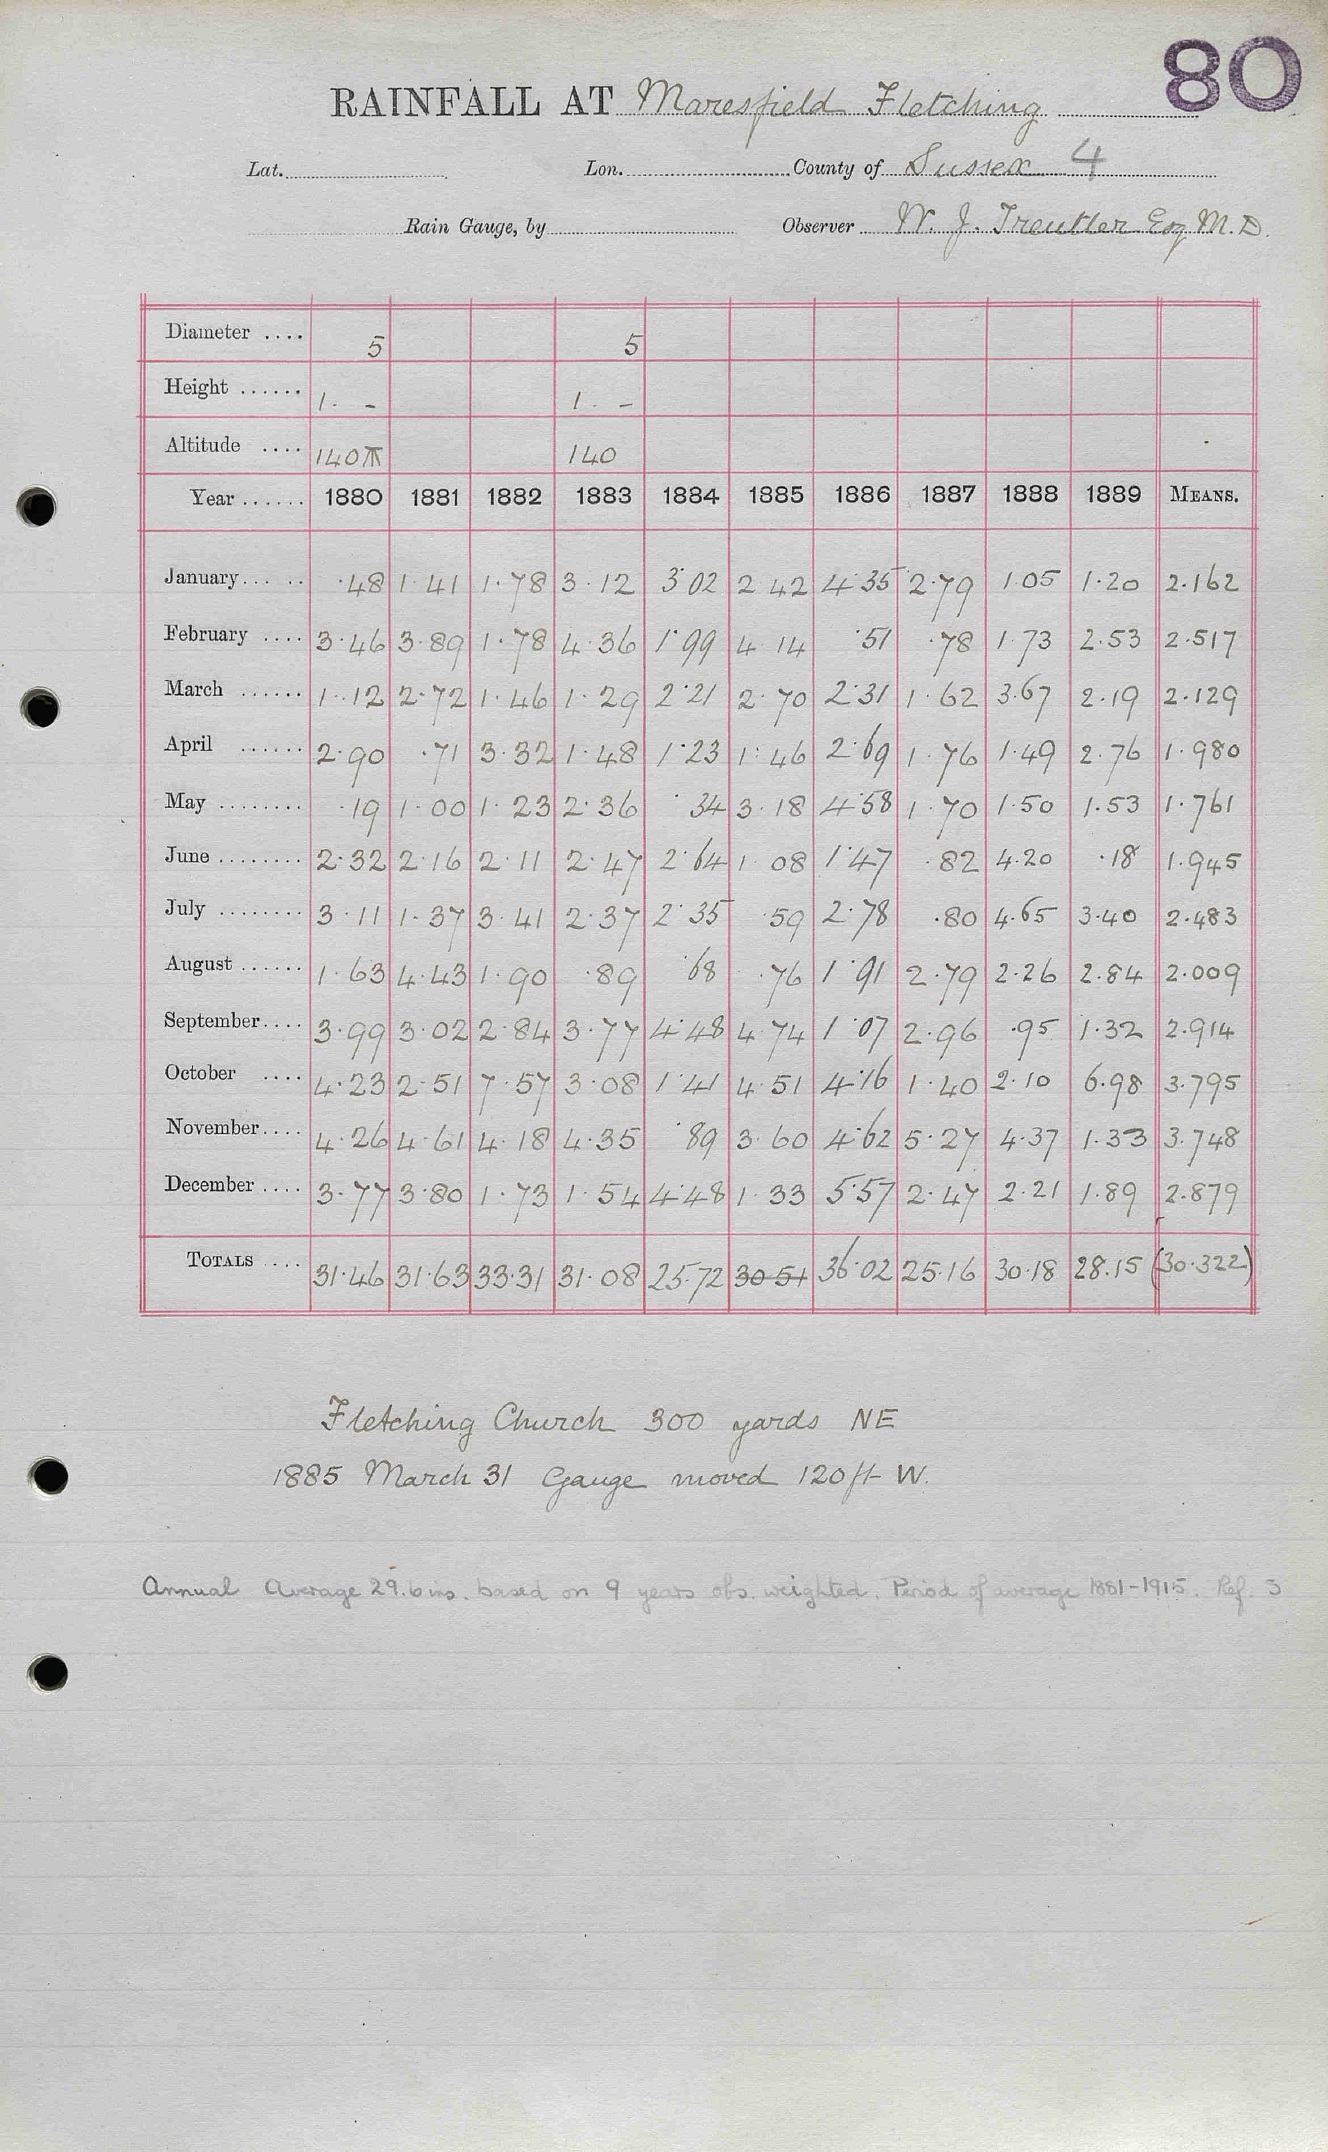 80
RAINFALL AT Maresfield Fletching
Lat. Lon. County of Sussex 4
Rain Gauge, by Observer W. J. Treutler Esq M.D.
Diameter .... 5 5
Height ...... 1. - 1. -
Altitude .... 140 140
Year ...... 1880 1881 1882 1883 1884 1885 1886 1887 1888 1889 MEANS.
January ... .. ·48 1·41 1·78 3·12 3·02 2·42 4·35 2·79 1·05 1·20 2·162
February .... 3·46 3·89 1·78 4·36 1·99 4·14 ·51 ·78 1·73 2·53 2·517
March ...... 1·12 2·72 1·46 1·29 2·21 2·70 2·31 1·62 3·67 2·19 2·129
April ...... 2·90 ·71 3·32 1·48 1·23 1·46 2·69 1·76 1·49 2·76 1·980
May ........ ·19 1·00 1·23 2·36 ·34 3·18 4·58 1·70 1·50 1·53 1·761
June ........ 2·32 2·16 2·11 2·47 2·64 1·08 1·47 ·82 4·20 ·18 1·945
July ........ 3·11 1·37 3·41 2·37 2·35 ·59 2·78 ·80 4·65 3·40 2·483
August ...... 1·63 4·43 1·90 ·89 ·68 ·76 1·91 2·79 2·26 2·84 2·009
September .... 3·99 3·02 2·84 3·77 4·48 4·74 1·07 2·96 ·95 1·32 2·914
October .... 4·23 2·51 7·57 3·08 1·41 4·51 4·16 1·40 2·10 6·98 3·795
November .... 4·26 4·61 4·18 4·35 ·89 3·60 4·62 5·27 4·37 1·33 3·748
December .... 3·77 3·80 1·73 1·54 4·48 1·33 5·57 2·47 2·21 1·89 2·879
TOTALS .... 31·46 31·63 33·31 31·08 25·72 30·51 36·02 25·16 30·18 28·15 (30·322)
Fletching Church 300 yards NE
1885 March 31 Gauge moved 120 ft W.
Annual Average 29.6 ins. based on 9 years obs. weighted. Period of average 1881-1915. Ref. S